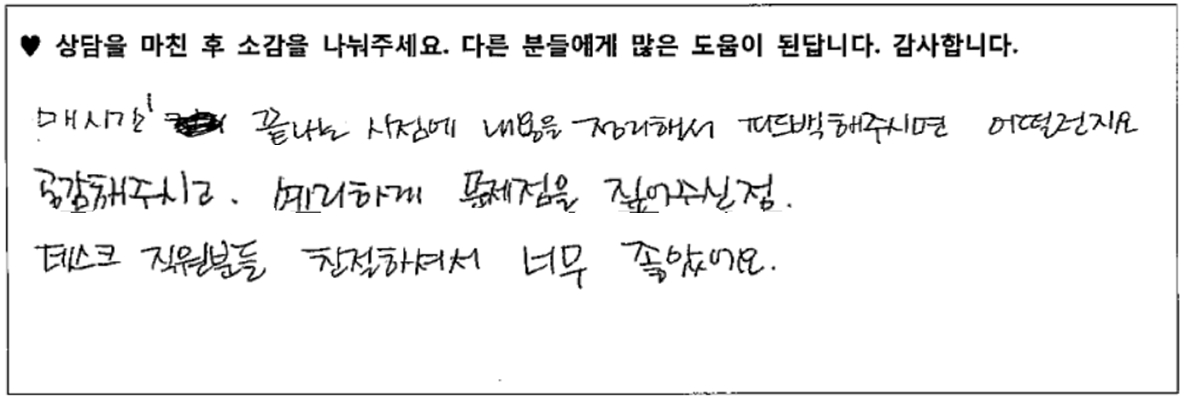 ♥ 상담을 마친 후 소감을 나눠주세요. 다른 분들에게 많은 도움이 된답니다. 감사합니다.
매시간 끝나는 시점에 내용을 정리해서 피드백해주시면 어떨런지요
공감해주시고. 예리하게 문제점을 짚어주신점.
데스크 직원분들 친절하셔서 너무 좋았어요.